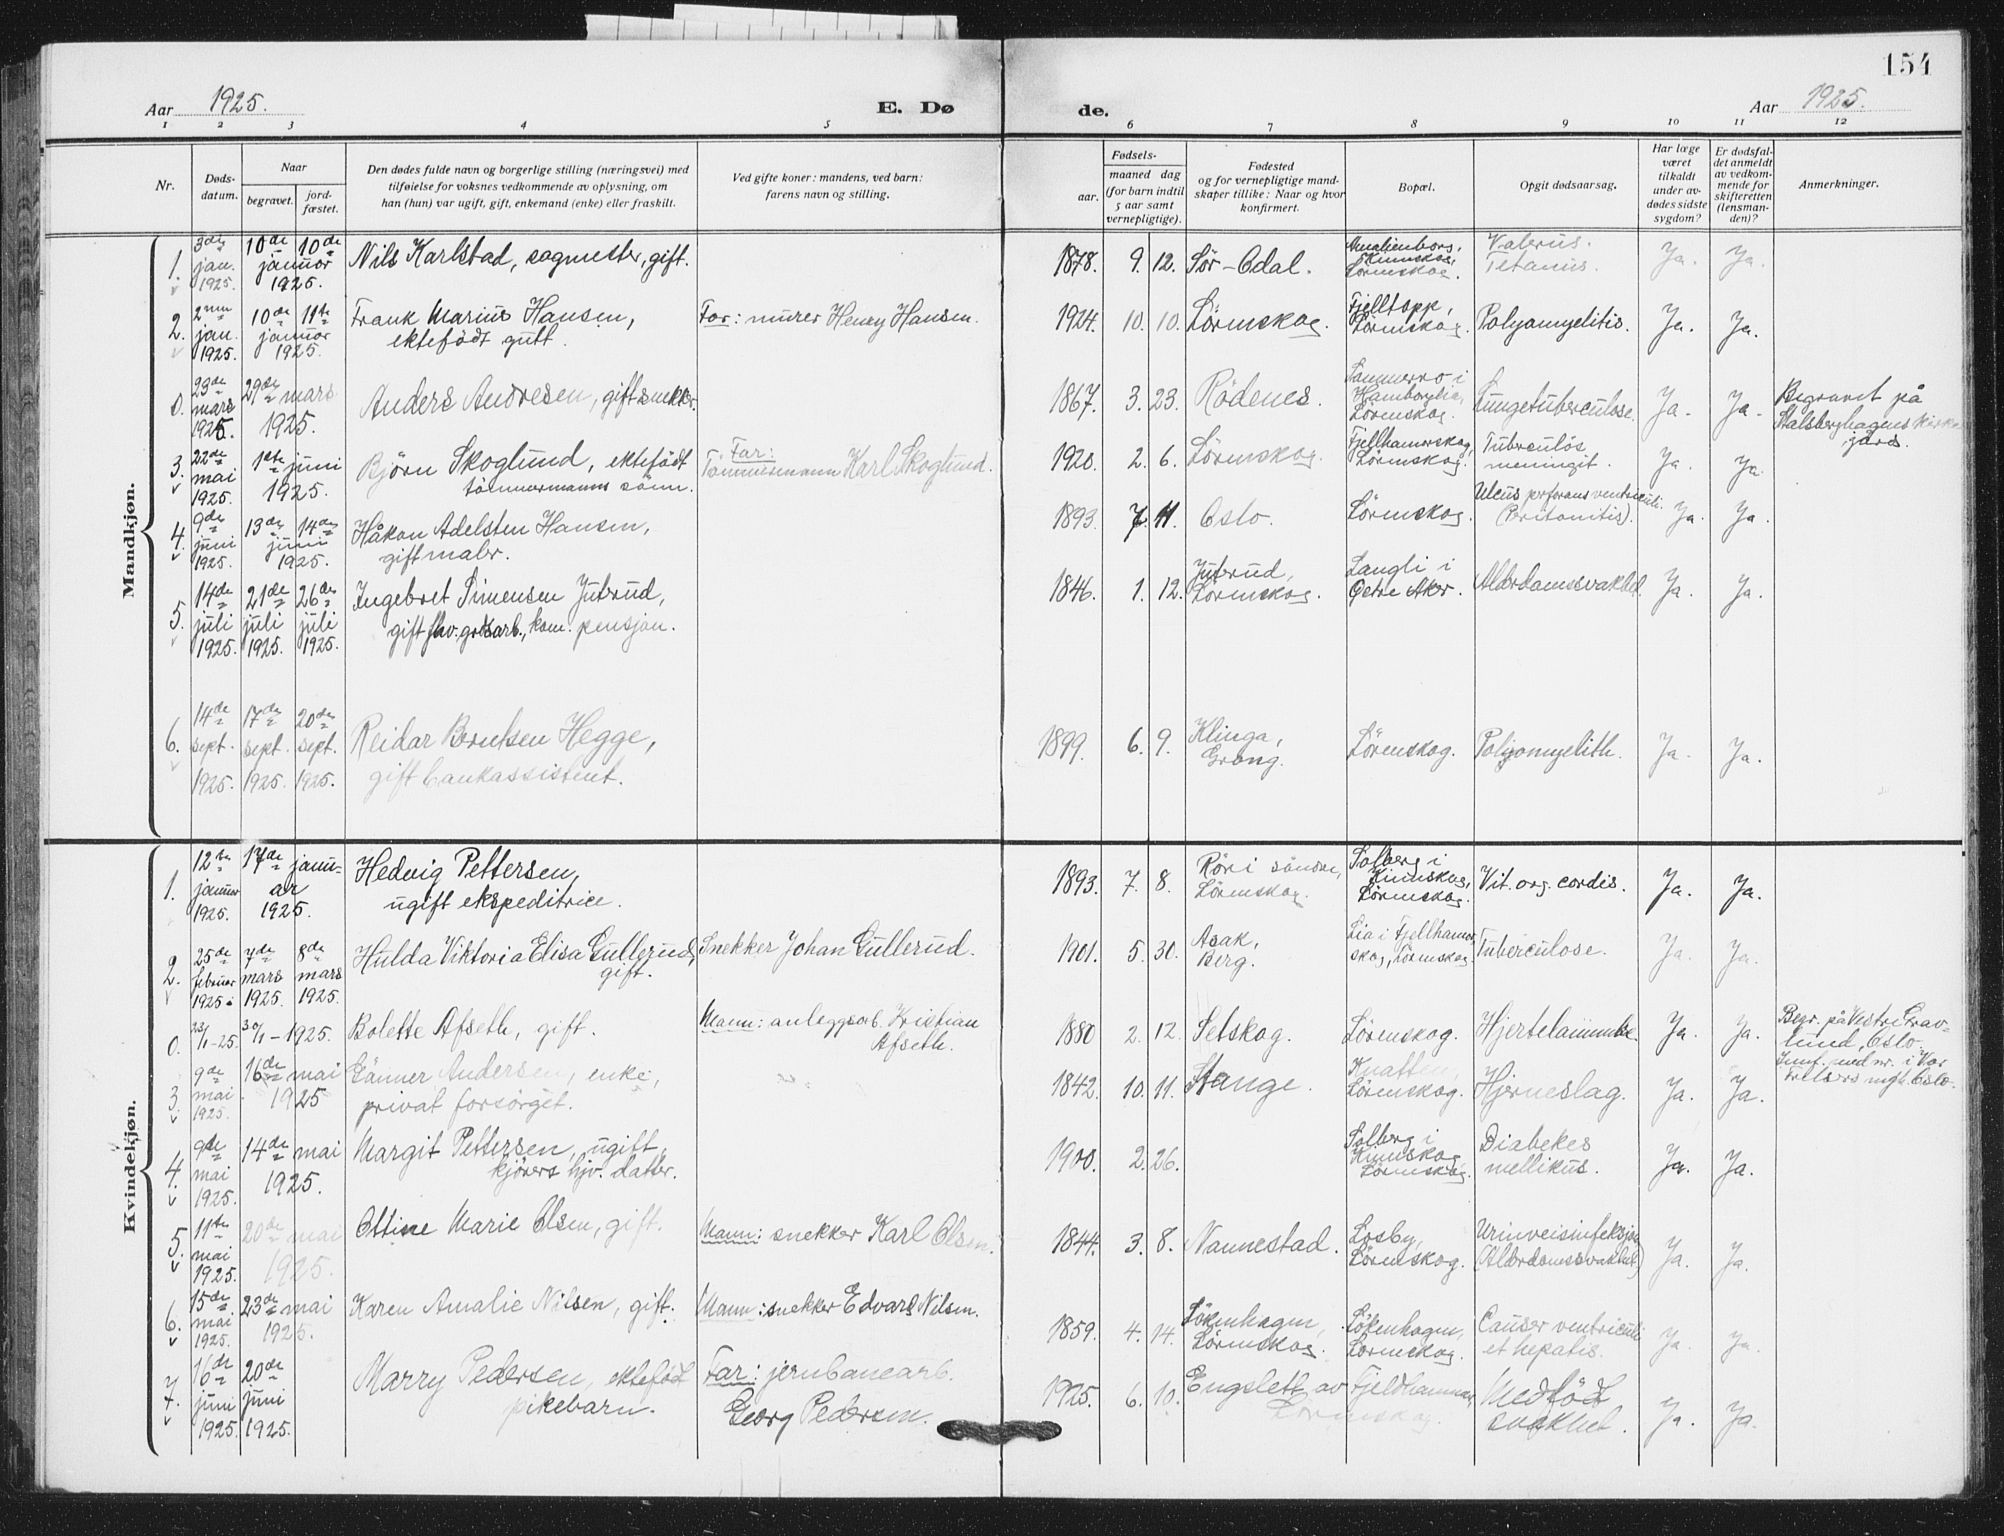 154
Aar 1925. E. Dø de. Aar 1925.
1 2 3 4 5 6 7 8 9 10 11 12
Nr. Døds-datum. Naar begravet. jord-fæstet. Den dødes fulde navn og borgerlige stilling (næringsvei) med tilføielse for voksnes vedkommende av oplysning, om han (hun) var ugift, gift, enkemand (enke) eller fraskilt. Ved gifte koner: mandens, ved barn: farens navn og stilling. Fødsels- aar. maaned dag (for barn indtil 5 aar samt vernepligtige). Fødested og for vernepligtige mandskaper tillike: Naar og hvor konfirmert. Bopæl. Opgit dødsaarsag. Har læge været tilkaldt under avdødes sidste sygdom? Er dødsfaldet anmeldt av vedkommende for skifteretten (lensmanden)? Anmerkninger.
Mandkjøn.
1. 3die jan. 1925. 10de januar 1925. 10de Nils Karlstad, sagmester, gift. 1878. 9. 12. Sör-Odal. Kinnskog, Lörenskog. Tetanus. Ja. Ja.
2. jan. 1925. 10de januar 1925. 11te Frank Marius Hansen, ektefödt gutt. Far: murer Henry Hansen. 1924. 10. 10. Lörenskog. Fjelltopp, Lörenskog. Polyomyelitis. Ja. Ja.
0. 23de mars 1925. 29de mars 1925. Anders Andresen, gift snekker. 1867. 3. 23. Rödenes. Sannerro i Lörenskog. Lungetuberculose. Ja. Ja. Begravet på Stalsberghagens kirkegård.
3. 22de mai 1925. 1ste juni 1925. Björn Skoglund, ektefödt tömmermanns sönn. Far: Tömmermann Karl Skoglund. 1920. 2. 6. Lörenskog. Fjellhamarskog, Lörenskog. Tuberculös meningit. Ja. Ja.
4. 9de juni 1925. 13de juni 1925. 14de Håkon Adelsten Hansen, gift maler. 1893. 7. 11. Oslo. Lörenskog. Ulcus perforans ventriculi. (Peritonitis). Ja. Ja.
5. 14de juli 1925. 21de juli 1925. 26de juli 1925. Ingebret Simensen Juterud, gift fhv. kom. pensjon. 1846. 1. 12. Juterud, Lörenskog. Langli i Östre Aker. Alderdomssvakhet. Ja. Ja.
6. 14de sept. 1925. 17de sept. 1925. 20de sept. 1925. Reidar Berntsen Hegge, gift bankassistent. 1899. 6. 9. Klinga, Grong. Lörenskog. Polyomyelith. Ja. Ja.
Kvindekjøn.
1. 12te januar 1925. 17de januar 1925. Hedvig Pettersen, ugift ekspeditrice. 1893. 7. 8. Rör i söndre, Lörenskog. Solberg i Kinnskog, Lörenskog. Vit. org. cordis. Ja. Ja.
2. 25de februar 1925. 7de mars 1925. 8de mars 1925. Hulda Viktoria Elisa Gullerud, gift. Snekker Johan Gullerud. 1901. 5. 30. Asak, Berg. Lia i Fjellhamarskog, Lörenskog. Tuberculose. Ja. Ja.
0. 23/1-25. 30/1-1925. Bolette Afseth, gift. Mann: anleggsarb. Kristian Afseth. 1880 2. 12. Setskog. Lörenskog. Hjertelammelse. Ja. Ja. Begr. på Vestre Gravlund, Oslo.
3. 9de mai 1925. 16de mai 1925 Andersen, enke, privat forsörget. 1842. 10. 11. Stange. Knatten, Lörenskog. Hjerneslag. Ja. Ja.
4. 9de mai 1925. 14de mai 1925. Margit Pettersen, ugift, kjörers hjv. datter. 1900. 2. 26. Solberg i Kinnskog, Lörenskog. Diabetes mellitus. Ja. Ja.
5. 11te mai 1925. 20de mai 1925. Ottine Marie Olsen, gift. Mann: snekker Karl Olsen. 1844. 3. 8. Nannestad. Losby, Lörenskog. Urinveisinfeksjon (Alderdomssvakhet) Ja. Ja.
6. 15de mai 1925. 23de mai 1925. Karen Amalie Nilsen, gift. Mann: snekker Edvard Nilsen. 1859. 4. 14. Lökenhagen, Lörenskog. Lökenhagen, Lörenskog. Cancer ventriculi et hepatis. Ja. Ja.
7. 16de juni 1925. 20de juni 1925. Marry Pedersen, ektefödt pikebarn. Far: jernbanearb. Georg Pedersen. 1925. 6. 10. Engslett av Lörenskog. Fjeldhammer, Medfödt svakhet. Ja. Ja.